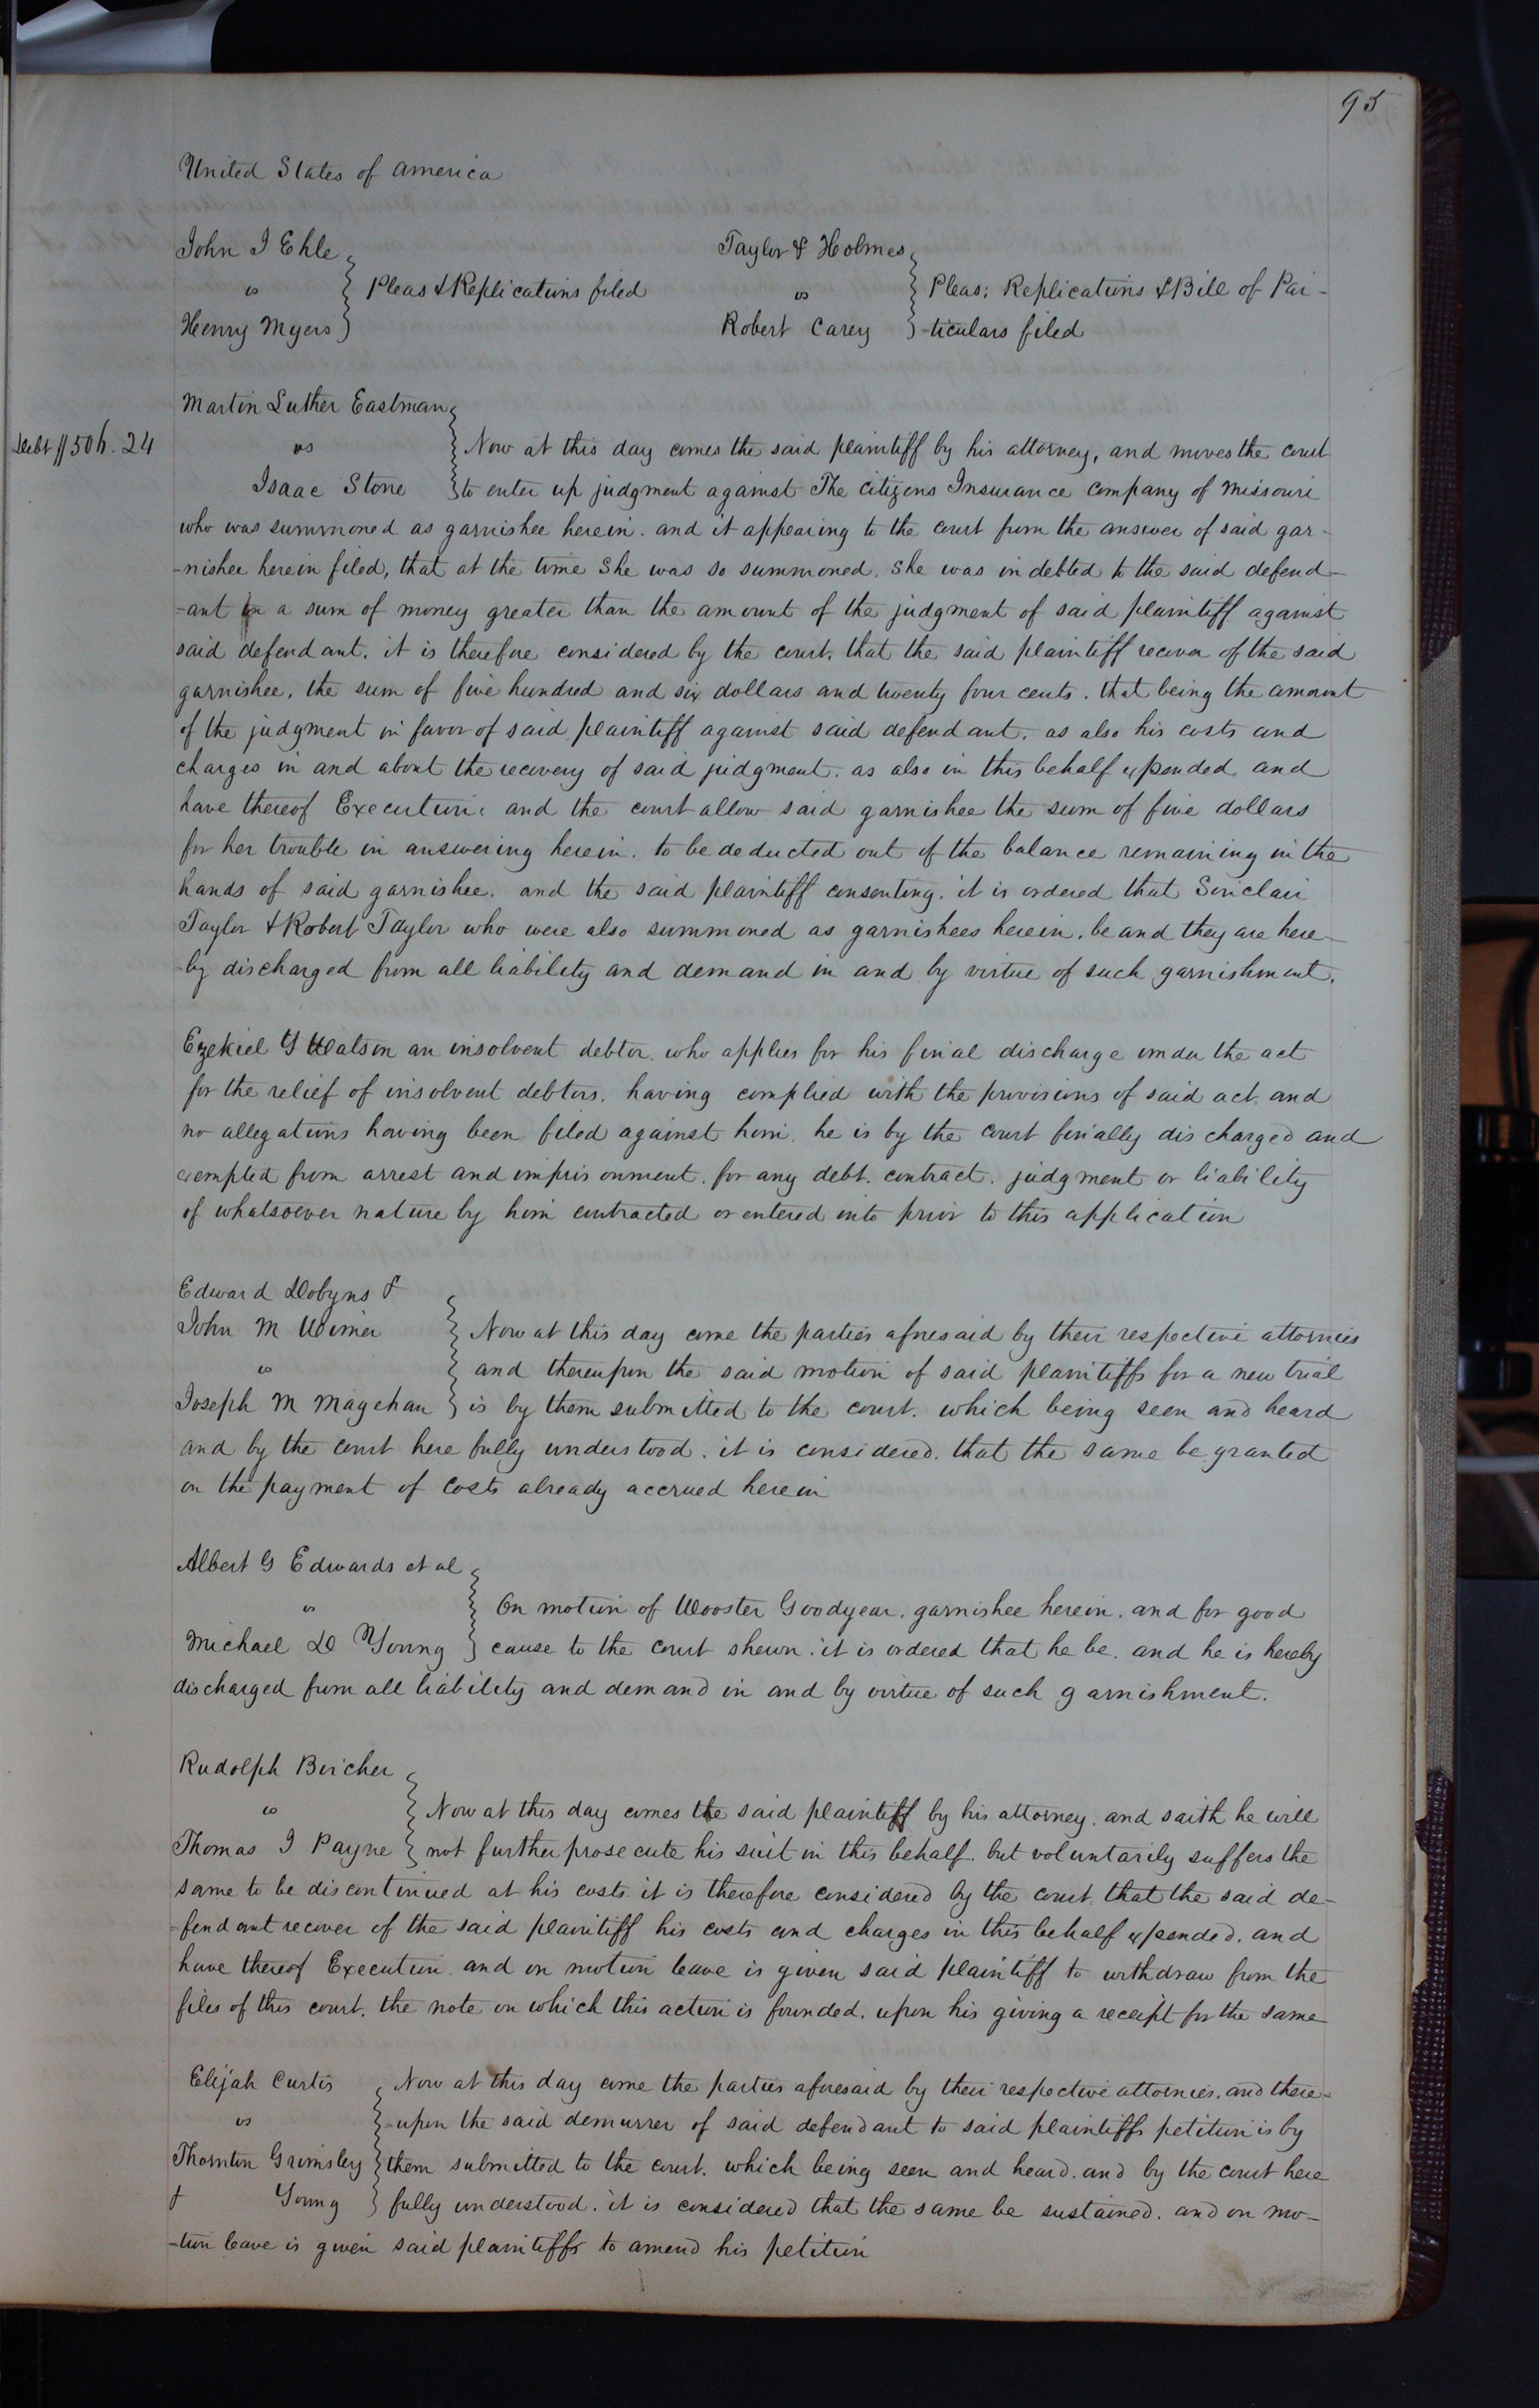 95
United States of America
John I Ehle
vs
Henry Myers
Pleas & Replications filed
Taylor & Holmes
vs
Robert Carey
Pleas; Replications & Bill of Par-
-ticulars filed
Debt $506.24
Martin Luther Eastman
vs Now at this day comes the said plaintiff by his attorney, and moves the court
Isaac Stone to enter up judgment against The Citizens Insurance Company of Missouri
who was summoned as garnishee herein. and it appearing to the court from the answer of said gar-
-nishee herein filed, that at the time She was so summoned. She was indebted to the said defend-
-ant in a sum of money greater than the amount of the judgment of said plaintiff against
said defendant. it is therefore considered by the court. that the said plaintiff recover of the said
garnishee, the sum of five hundred and six dollars and twenty four cents. that being the amount
of the judgment in favor of said plaintiff against said defendant. as also his costs and
charges in and about the recovery of said judgment. as also in this behalf expended. and
have thereof Execution. and the court allow said garnishee the sum of five dollars
for her trouble in answering herein. to be deducted out of the balance remaining in the
hands of said garnishee. and the said plaintiff consenting. it is ordered that Sinclair
Taylor & Robert Taylor who were also summoned as garnishees herein. be and they are here-
-by discharged from all liability and demand in and by virtue of such garnishment.
Ezekiel G Watson an insolvent debtor. who applies for his final discharge under the act
for the relief of insolvent debtors. having complied with the provisions of said act. and
no allegations having been filed against him. he is by the court finally discharged and
exempted from arrest and imprisonment. for any debt. contract. judgment or liability
of whatsoever nature by him contracted or entered into prior to this application
Edward Dobyns &
John M Wimer Now at this day come the parties aforesaid by their respective attornies
vs and thereupon the said motion of said plaintiffs for a new trial
Joseph M Magehan is by them submitted to the court. which being seen and heard
and by the court here fully understood. it is considered. that the same be granted
on the payment of costs already accrued herein
Albert G Edwards et al
vs On motion of Wooster Goodyear. garnishee herein. and for good
Michael D Young cause to the court shewn. it is ordered that he be. and he is hereby
discharged from all liability and demand in and by virtue of such garnishment.
Rudolph Bircher
vs Now at this day comes the said plaintiff by his attorney. and saith he will
Thomas I Payne not further prosecute his suit in this behalf. but voluntarily suffers the
same to be discontinued at his costs. it is therefore considered by the court. that the said de-
-fendant recover of the said plaintiff his costs and charges in this behalf expended. and
have thereof Execution. and on motion leave is given said plaintiff to withdraw from the
files of this court. the note on which this action is founded. upon his giving a receipt for the same
Elijah Curtis Now at this day come the parties aforesaid by their respective attornies. and there-
vs -upon the said demurrer of said defendant to said plaintiffs petition is by
Thornton Grimsley them submitted to the court. which being seen and heard. and by the court here
& Young fully understood. it is considered that the same be sustained. and on mo-
-tion leave is given said plaintiffs to amend his petition